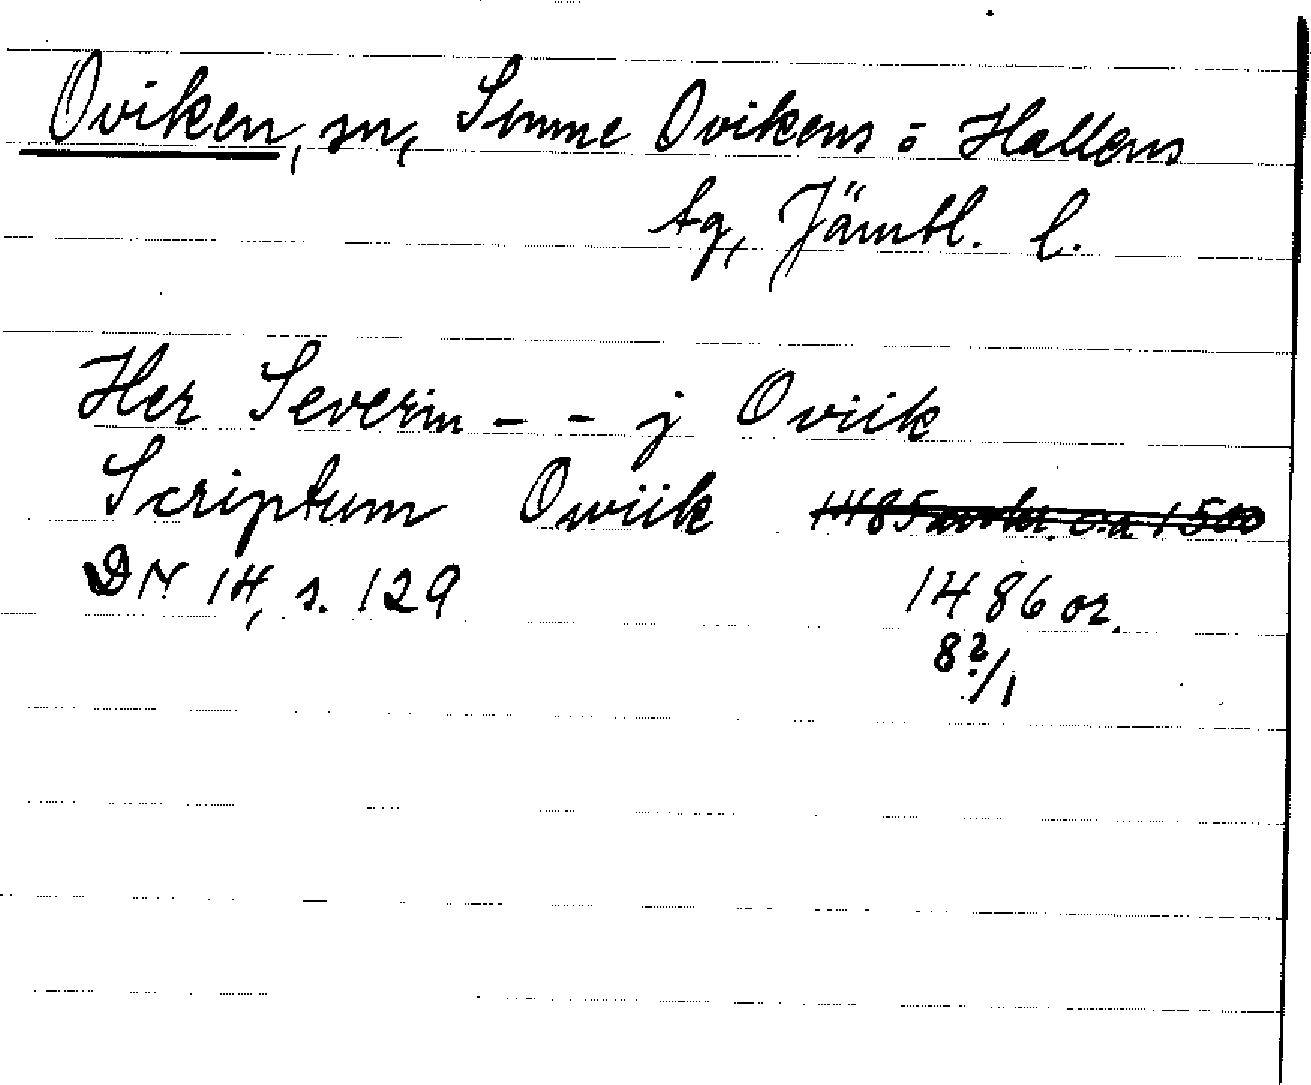 Oviken, sn, Sunne Ovikens o Hallens
tg, Jämtl. l.
Her Severin - - j Oviik
Scriptum Owiik
DN 14, s. 129 1486 or.
8 2/1